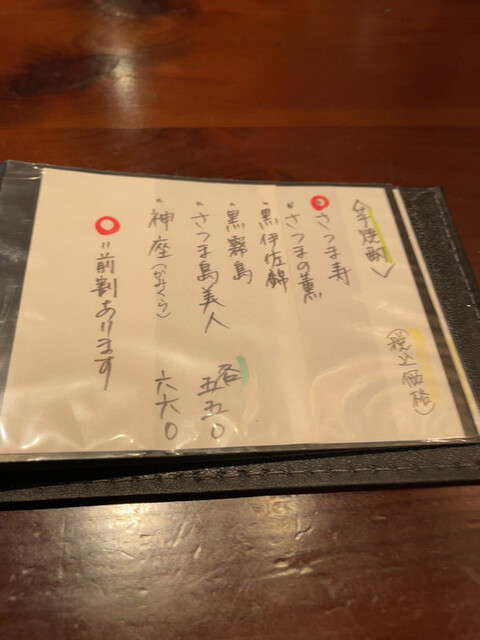 〈芋焼酎〉 (税込価格)
○さつま寿
・さつまの薫
・黒伊佐錦
・黒霧島
・さつま島美人 各五五〇
・神座(かみくら) 六六〇
○=前割あります